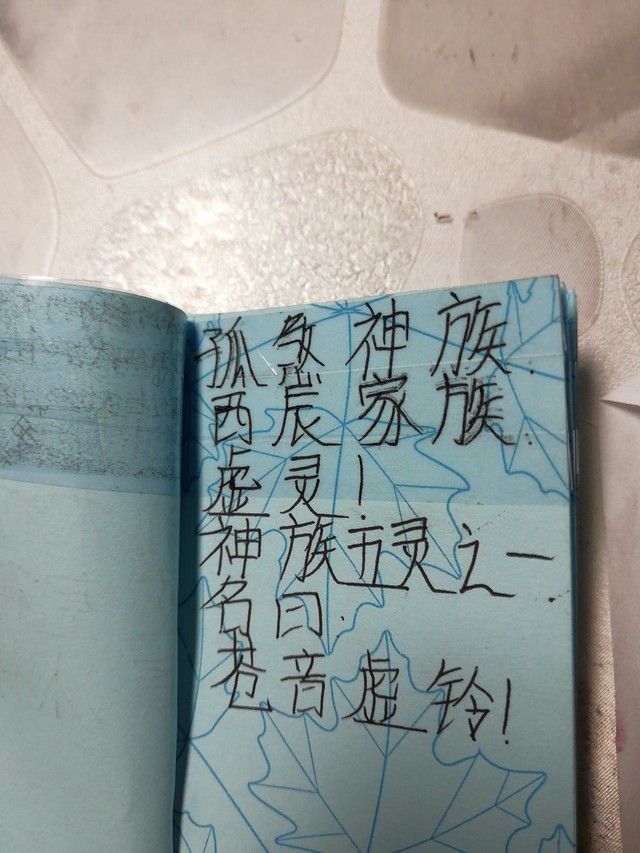 孤䍃神族.
西辰家族.
虚灵!
神族五灵之一.
名曰.
苍音虚铃!